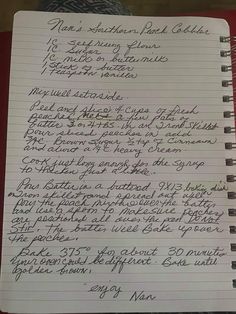 Nan's Southern Peach Cobbler
1C Self rising flour
1C Sugar
1C milk or buttermilk
1 Stick of butter
1 teaspoon vanilla
Mix well set aside
Peel and slice 4 cups of fresh
peaches. Melt a few pats of
butter 3 or 4 tbs in an Iron Skillet
Pour sliced peaches in add
brown sugar tsp of Cinnamon
and about a 1/2 heavy cream.
Cook just long enough for the syrup
to thicken just a little.
Pour Batter in a buttered 9x13 baking dish
or iron skillet and spread out use
pour the peach mixture over the batter
and use a spoon to make sure peaches
are positioned all over the pan. Do Not
Stir. The batter will Bake up over
the peaches.
Bake 375° for about 30 minutes
your oven could be different. Bake until
golden brown.
enjoy
Nan